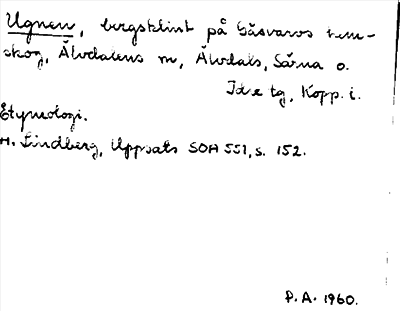 Ugnen, bergsklint på Gåsvarvs hem-
skog, Älvdalens sn, Älvdals, Särna o.
Idre tg, Kopp. l.
Etymologi.
H. Lindberg, Uppsats SOH 551, s. 152.
P. A. 1960.